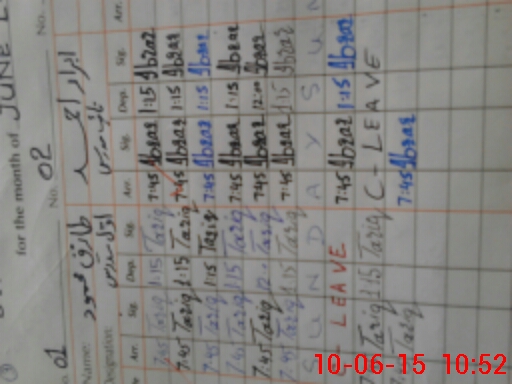 for the month of JUNE
No. 01 No. 02 No.
Name: طارق محمود ابرار احمد
Designation:
Arr. Sig. Dep. Sig. Arr. Sig. Dep. Sig. Arr.
7:45 Tariq 1:15 Tariq 7:45 Abrar 1:15 Abrar
7:45 Tariq 1:15 Tariq 7:45 Abrar 1:15 Abrar
7:45 Tariq 1:15 Tariq 7:45 Abrar 1:15 Abrar
7:45 Tariq 1:15 Tariq 7:45 Abrar 1:15 Abrar
7:45 Tariq Tariq 7:45 Abrar 12:00 Abrar
7:45 Tariq 1:15 Tariq 7:45 Abrar 1:15 Abrar
S U N D A Y S U N
- LEAVE 7:45 Abrar 1:15 Abrar
Tariq 1:15 Tariq C - LEAVE
Tariq 7:45 Abrar
10-06-15 10:52